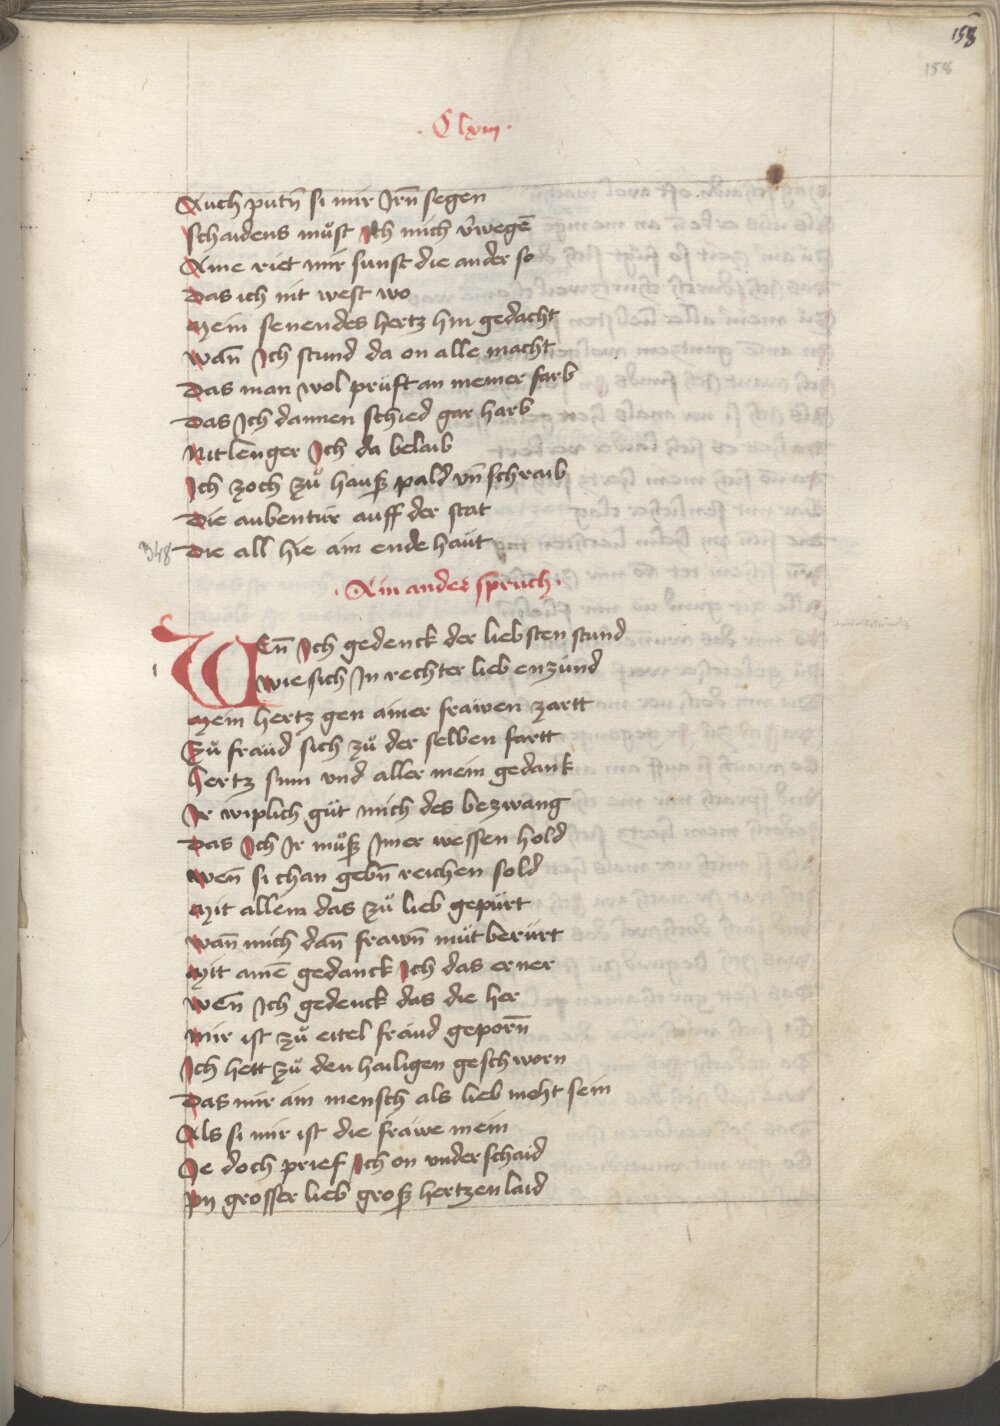 158
158
· Clxiii ·
Auch putñ si mir Jrñ segen
Schaidens mûst Ich mich v̄wegē
Aine riet mir sunst die ander so
Das ich nit west wo
Mein senendes hertz hin gedacht
Wañ Ich stund da on alle macht
Das man wol prüft an meiner farb
Das Ich dannen schied gar harb
Nit lenger Ich da belaib
Ich zoch zů hauß pald vñ schraib
Die aubentür auff der stat
Die all hie ain ende haüt
348
· Ain ander spruch ·
WEñ Ich gedenck der liebsten stund
Wie sich In rechter lieb enzünd
1
Mein hertz gen ainer frawen zartt
Zů fräud sich zů der selben fartt
Hertz sinn vnd aller mein gedank
Ir wiplich güt mich des bezwang
Das Ich Ir můß Imer wessen hold
Wen̄ si chan gebñ reichen sold
Mit allem das zů lieb gepürt
Wañ mich dañ frawñ müt berürt
Mit ainē gedanck Ich das erner
Wen̄ Ich gedenck das die her
Mir ist zů eitel fräud geporñ
Ich hett zů den hailigen geschworn
Das mir ain mensch als lieb moht sein
Als si mir ist die frawe mein
Je doch prief Ich on vnderschaid
By grosser lieb groß hertzen laid